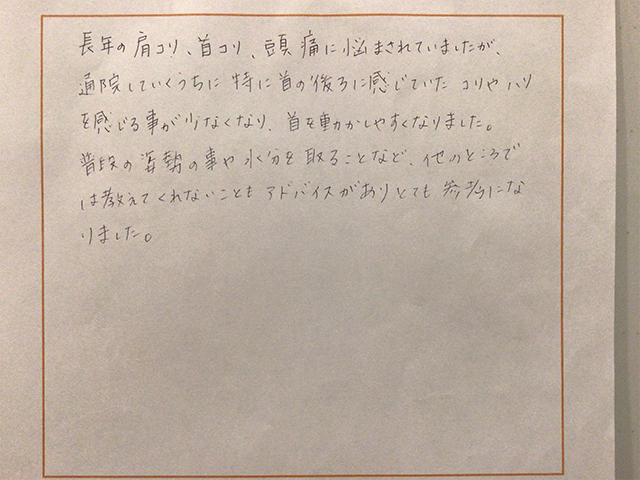 長年の肩コリ、首コリ、頭痛に悩まされていましたが、
通院していくうちに特に首の後ろに感じていたコリやハリ
を感じる事が少なくなり、首を動かしやすくなりました。
普段の姿勢の事や水分を取ることなど、他のところで
は教えてくれないこともアドバイスがありとても参考にな
りました。